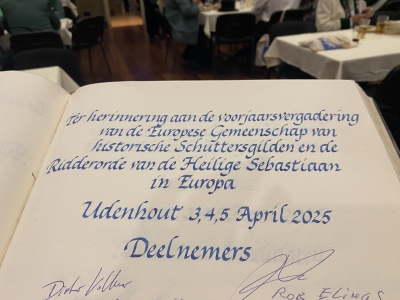 Ter herinnering aan de voorjaarsvergadering
van de Europese Gemeenschap van
historische Schuttersgilden en de
Ridderorde van de Heilige Sebastiaan
in Europa
Udenhout 3,4,5 April 2025
Deelnemers
Dieter
Rob